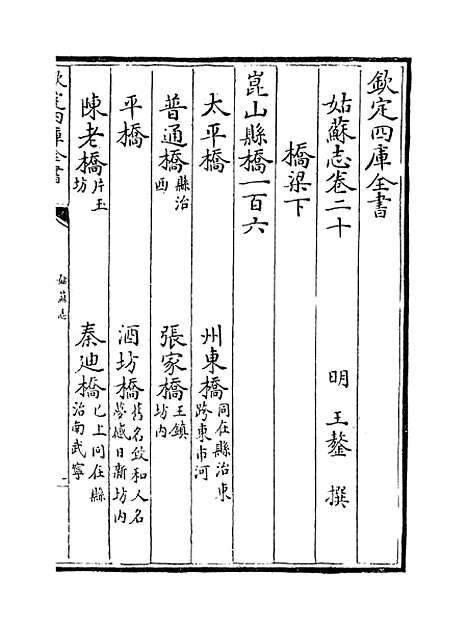 欽定四庫全書
姑蘇志卷二十
明 王鏊 撰
橋梁下
崑山縣橋一百六
太平橋 州東橋同在縣治東跨東市河
普通橋縣治西 張家橋王鎮坊内
平橋 酒坊橋舊名敘和人名夢感日漸坊内
陳老橋片玉坊 秦迪橋已上同在縣治南武寧
欽定四庫全書
姑蘇志